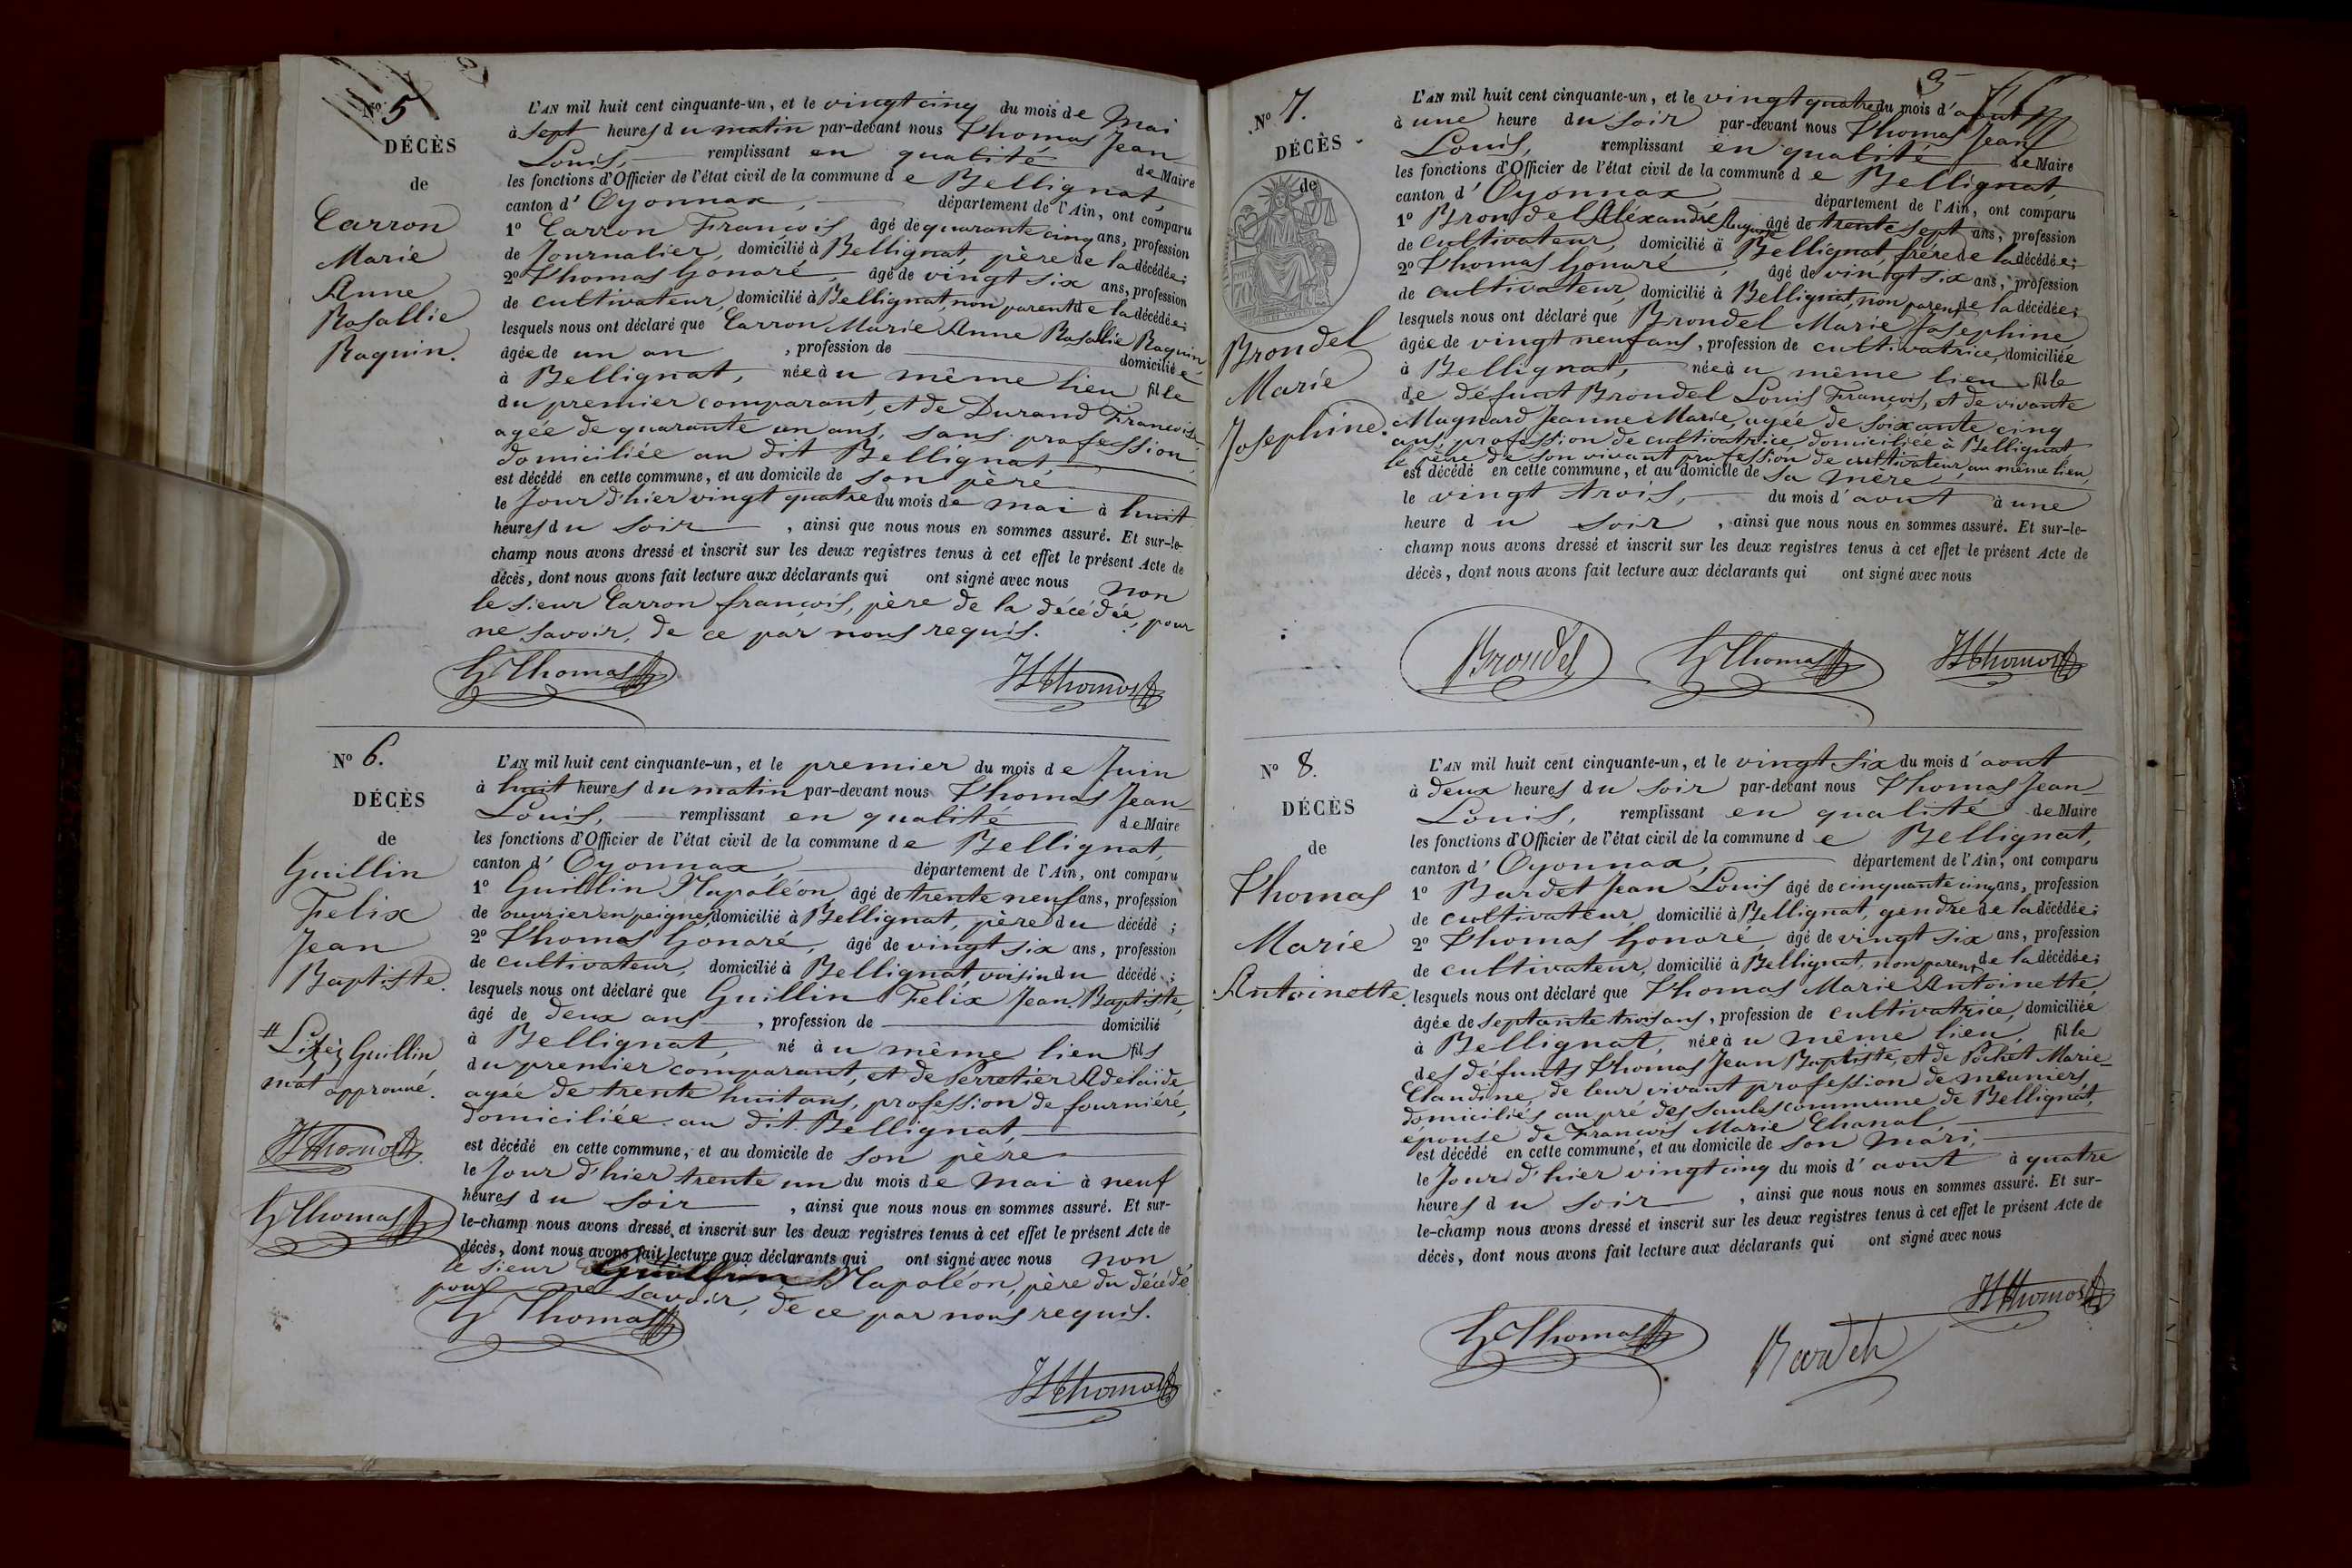 N° 5
DÉCÈS
de
Carron
Marie
Anne
Rosallie
Raquin.
L'AN mil huit cent cinquante-un, et le vingt cinq du mois de Mai
à Sept heures du matin par-devant nous Thomas Jean
Louis, remplissant en qualité de Maire
les fonctions d'Officier de l'état civil de la commune de Bellignat,
canton d'Oyonnax, département de l'Ain, ont comparu
1° Carron François âgé de quarante cinq ans, profession
de Journalier, domicilié à Bellignat, père de la décédée;
2° Thomas honoré, âgé de vingt six ans, profession
de cultivateur, domicilié à Bellignat, non parent de la décédée;
lesquels nous ont déclaré que Carron Marie Anne Rosallie Raquin,
âgée de un an, profession de domiciliée
à Bellignat, née au même lieu fille
du premier comparant, et de Durand Françoise
agée de quarante un ans, sans profession,
domiciliée au dit Bellignat,
est décédé en cette commune, et au domicile de son père
le Jour d'hier vingt quatre du mois de mai à huit
heures du soir, ainsi que nous nous en sommes assuré. Et sur-le-
champ nous avons dressé et inscrit sur les deux registres tenus à cet effet le présent Acte de
décès, dont nous avons fait lecture aux déclarants qui ont signé avec nous non
le sieur Carron françois, père de la décédée, pour
ne savoir, de ce par nous requis.
h Thomas JL Thomas
N° 6.
DÉCÈS
de
Guillin
Felix
Jean
Baptiste.
# Lisez Guillin,
mot approuvé.
JL Thomas
h Thomas
L'AN mil huit cent cinquante-un, et le premier du mois de Juin
à huit heures du matin par-devant nous Thomas Jean
Louis, remplissant en qualité de Maire
les fonctions d'Officier de l'état civil de la commune de Bellignat,
canton d'Oyonnax, département de l'Ain, ont comparu
1° Guillin Napoléon, âgé de trente neuf ans, profession
de ouvrier en peignes domicilié à Bellignat, père du décédé;
2° Thomas honoré, âgé de vingt six ans, profession
de cultivateur, domicilié à Bellignat, voisin du décédé;
lesquels nous ont déclaré que Guillin Felix Jean Baptiste,
âgé de deux ans, profession de domicilié
à Bellignat, né au même lieu fils
du premier comparant, et de Perretier Adelaïde
agée de trente huit ans, profession de fourniéré,
domiciliée au dit Bellignat,
est décédé en cette commune, et au domicile de son père
le Jour d'hier trente un du mois de mai à neuf
heures du soir, ainsi que nous nous en sommes assuré. Et sur-
le-champ nous avons dressé et inscrit sur les deux registres tenus à cet effet le présent Acte de
décès, dont nous avons fait lecture aux déclarants qui ont signé avec nous non
le sieur Guillin Napoléon, père du décédé
pour ne savoir, de ce par nous requis.
h Thomas
JL Thomas
3
N° 7.
DÉCÈS
de
Brondel
Marie
Josephine.
L'AN mil huit cent cinquante-un, et le vingt quatre du mois d'aout
à une heure du soir par-devant nous Thomas Jean
Louis, remplissant en qualité de Maire
les fonctions d'Officier de l'état civil de la commune de Bellignat,
canton d'Oyonnax, département de l'Ain, ont comparu
1° Brondel Aléxandre Auguste âgé de trente sept ans, profession
de cultivateur, domicilié à Bellignat, frère de la décédée;
2° Thomas honoré, âgé de vingt six ans, profession
de cultivateur, domicilié à Bellignat, non parent de la décédée;
lesquels nous ont déclaré que Brondel Marie Josephine
âgée de vingt neuf ans, profession de cultivatrice, domiciliée
à Bellignat, née au même lieu fille
de défunt Brondel Louis François, et de vivante
Magnard Jeanne Marie, agée de soixante cinq
ans, profession de cultivatrice domiciliée à Bellignat,
le père de son vivant profession de cultivateur, au même lieu,
est décédé en cette commune, et au domicile de sa mère
le vingt trois, du mois d'aout à une
heure du soir, ainsi que nous nous en sommes assuré. Et sur-le-
champ nous avons dressé et inscrit sur les deux registres tenus à cet effet le présent Acte de
décès, dont nous avons fait lecture aux déclarants qui ont signé avec nous
Brondel h Thomas JL Thomas
N° 8.
DÉCÈS
de
Thomas
Marie
Antoinette.
L'AN mil huit cent cinquante-un, et le vingt six du mois d'aout
à deux heures du soir par-devant nous Thomas Jean
Louis, remplissant en qualité de Maire
les fonctions d'Officier de l'état civil de la commune de Bellignat,
canton d'Oyonnax, département de l'Ain, ont comparu
1° Bardet Jean Louis âgé de cinquante cinq ans, profession
de cultivateur, domicilié à Bellignat, gendre de la décédée;
2° Thomas honoré, âgé de vingt six ans, profession
de cultivateur, domicilié à Bellignat, non parent de la décédée;
lesquels nous ont déclaré que Thomas Marie Antoinette,
âgée de septante trois ans, profession de cultivatrice, domiciliée
à Bellignat, née au même lieu, fille
des défunts Thomas Jean Baptiste, et de Pochet Marie
Claudine, de leur vivant profession de meuniers,
domiciliés au pré des saules commune de Bellignat,
épouse de François Marie Chanal,
est décédé en cette commune, et au domicile de son mari,
le Jour d'hier vingt cinq du mois d'aout à quatre
heures du soir, ainsi que nous nous en sommes assuré. Et sur-
le-champ nous avons dressé et inscrit sur les deux registres tenus à cet effet le présent Acte de
décès, dont nous avons fait lecture aux déclarants qui ont signé avec nous
JL Thomas
h Thomas Bardet